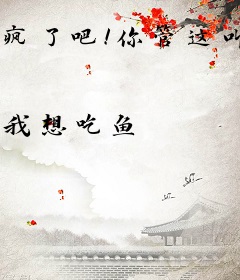 疯了吧!你管这叫
我想吃鱼